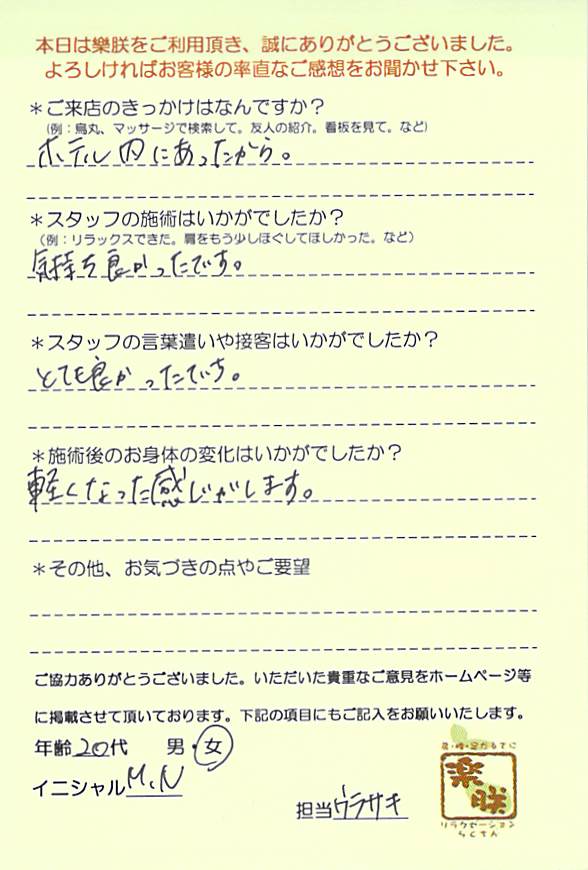 本日は樂朕をご利用頂き、誠にありがとうございました。
よろしければお客様の率直なご感想をお聞かせ下さい。
＊ご来店のきっかけはなんですか？
(例：烏丸、マッサージで検索して。友人の紹介。看板を見て。など)
ホテル内にあったから。
＊スタッフの施術はいかがでしたか？
（例：リラックスできた。肩をもう少しほぐしてほしかった。など）
気持ち良かったです。
＊スタッフの言葉遣いや接客はいかがでしたか？
とても良かったです。
＊施術後のお身体の変化はいかがでしたか？
軽くなった感じがします。
＊その他、お気づきの点やご要望
ご協力ありがとうございました。いただいた貴重なご意見をホームページ等
に掲載させて頂いております。下記の項目にもご記入をお願いいたします。
年齢 20代 男・女
イニシャル M.N
担当 ウラサキ
樂朕
リラクゼーション
らくちん